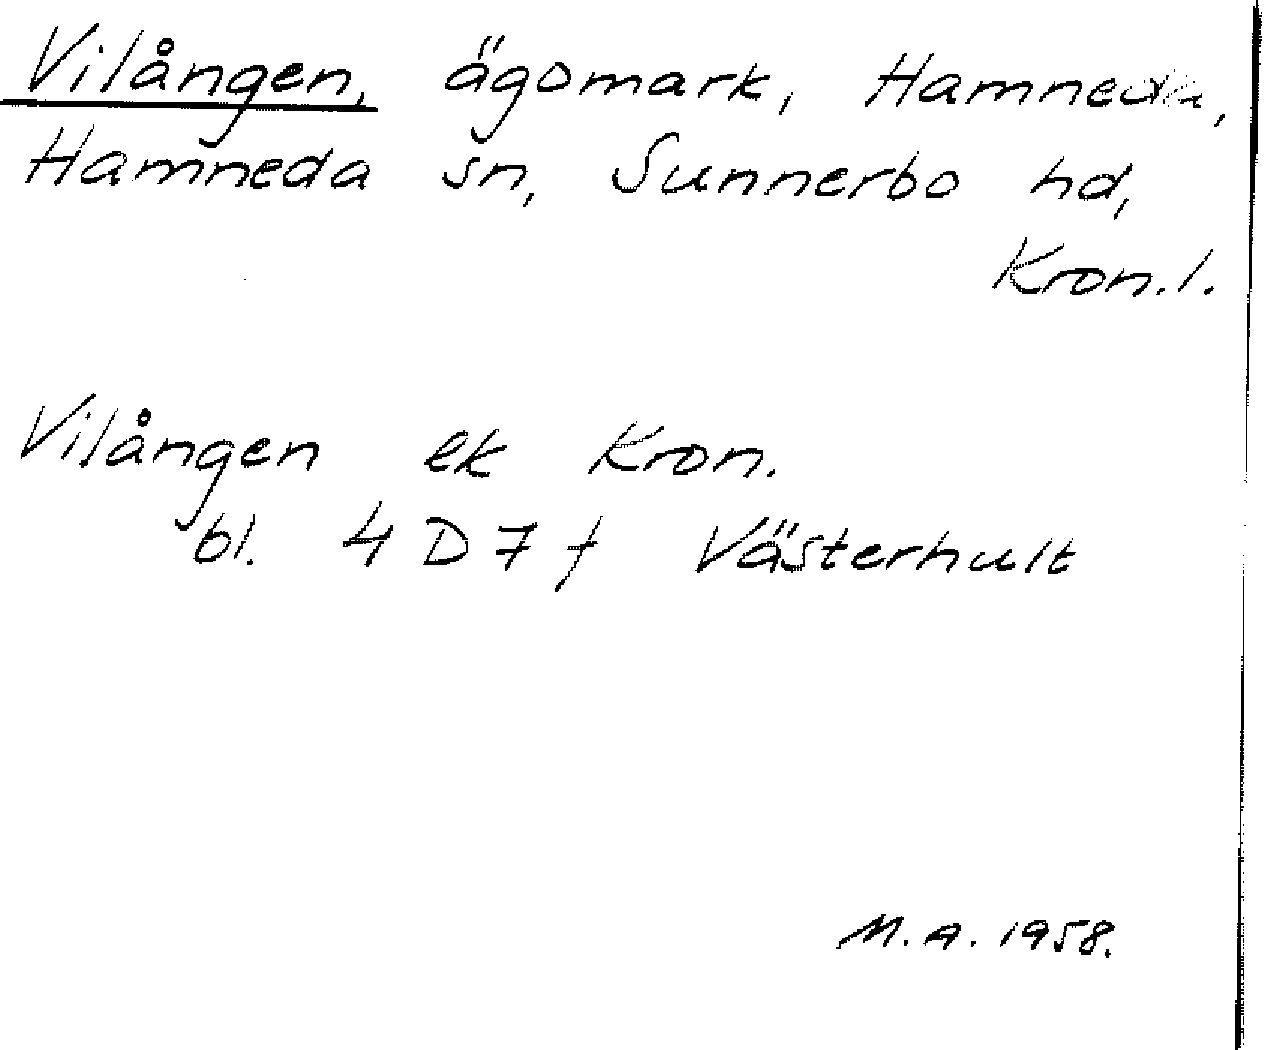 Vilången, ägomark, Hamneda,
Hamneda sn, Sunnerbo hd,
Kron.l.
Vilången ek Kron.
bl. 4 D 7 f Västerhult
M.A. 1958.